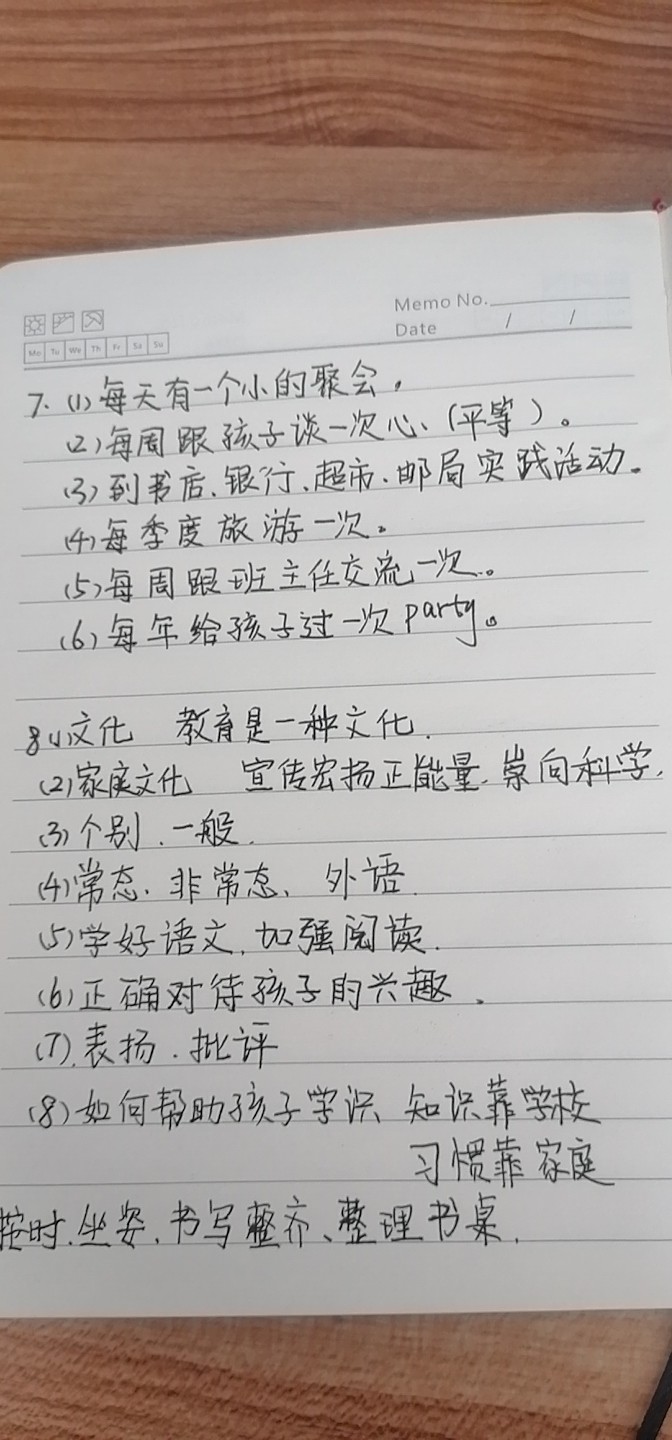 Memo No.
Date / /
Mo Tu We Th Fr Sa Su
7. (1) 每天有一个小的聚会。
(2) 每周跟孩子谈一次心、(平等)。
(3) 到书店、银行、超市、邮局实践活动。
(4) 每季度旅游一次。
(5) 每周跟班主任交流一次。
(6) 每年给孩子过一次party。
8 (1) 文化 教育是一种文化.
(2) 家庭文化 宣传宏扬正能量、崇向科学,
(3) 个别、一般.
(4) 常态、非常态、外语.
(5) 学好语文, 加强阅读.
(6) 正确对待孩子的兴趣.
(7). 表扬.批评
(8) 如何帮助孩子学识 知识靠学校
习惯靠家庭
按时、坐姿、书写整齐、整理书桌.